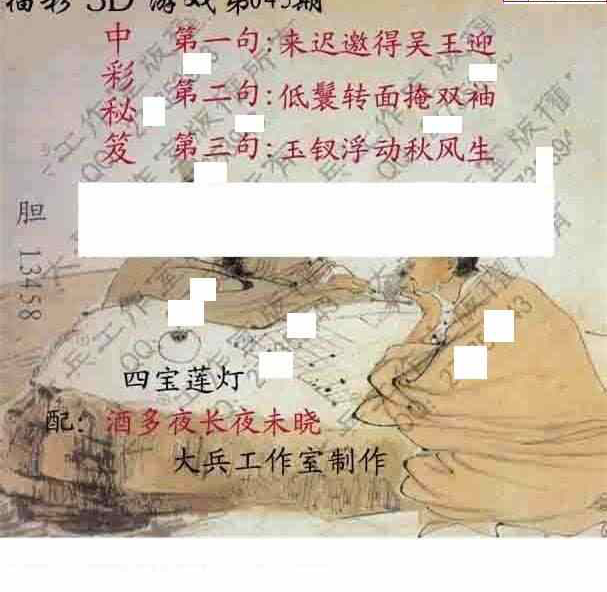 福彩 3D 游戏第045期
中彩秘笈
第一句:来迟邀得吴王迎
第二句:低鬟转面掩双袖
第三句:玉钗浮动秋风生
胆 13458
四宝莲灯
配:酒多夜长夜未晓
大兵工作室制作